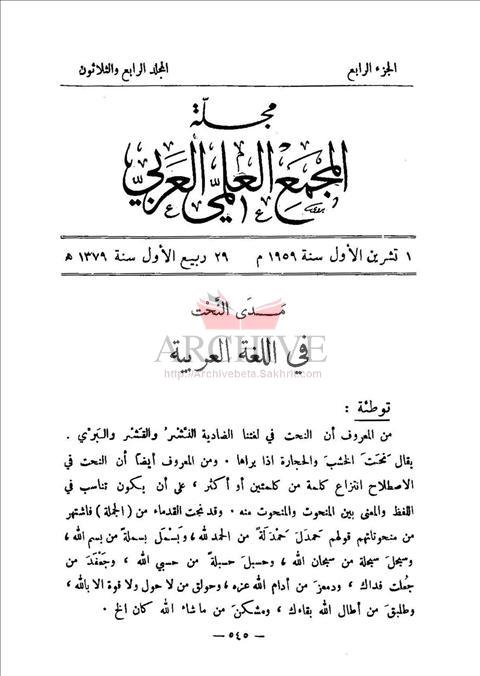 الجزء الرابع المجلد الرابع والثلاثون
مجلّة
المجمع العلمي العربي
١ تشرين الأول سنة ١٩٥٩ م ٢٩ ربيع الأول سنة ١٣٧٩ ه
مَدَى النَّحْت
ARCHIVE
في اللغة العربية
http://Archivebeta.Sakhrit.com
توطئة :
من المعروف أن النحت في لغتنا الضادية النَّشْرُ والقَشْر والبَرْي .
يقال نَحَتَ الخشب والحجارة اذا براها . ومن المعروف أيضاً أن النحت في
الاصطلاح انتزاع كلمة من كلمتين أو أكثر ، على أن يكون تناسب في
اللفظ والمعنى بين المنحوت والمنحوت منه . وقد نحت القدماء من ( الجملة ) فاشتهر
من منحوتاتهم قولهم حَمدَلَ حَمْدَلَةً من الحمد لله ، وبَسْمَل بسملةً من بسم الله ،
وسبحلَ سبحلة من سبحان الله ، وحسبلَ حسبلةً من حسبي الله ، وجَعْفَدَ من
جُعلت فداك ، ودمعزَ من أدام الله عزه ، وحولق من لا حول ولا قوة الا بالله ،
وطلبقَ من أطال الله بقاءك ، ومشكنَ من ما شاء الله كان الخ .
— ٥٤٥ —